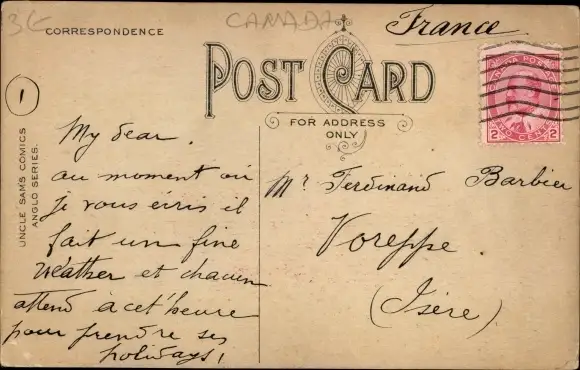 3G
CANADA
France
CORRESPONDENCE
POST CARD
FOR ADDRESS
ONLY
CANADA POSTAGE
2 TWO CENTS 2
1
UNCLE SAMS COMICS
ANGLO SERIES.
My dear.
au moment où
je vous écris il
fait un fine
weather et chacun
attend à cet'heure
pour prendre ses
holidays!
Mr Ferdinand Barbier
Voreppe.
(Isère)